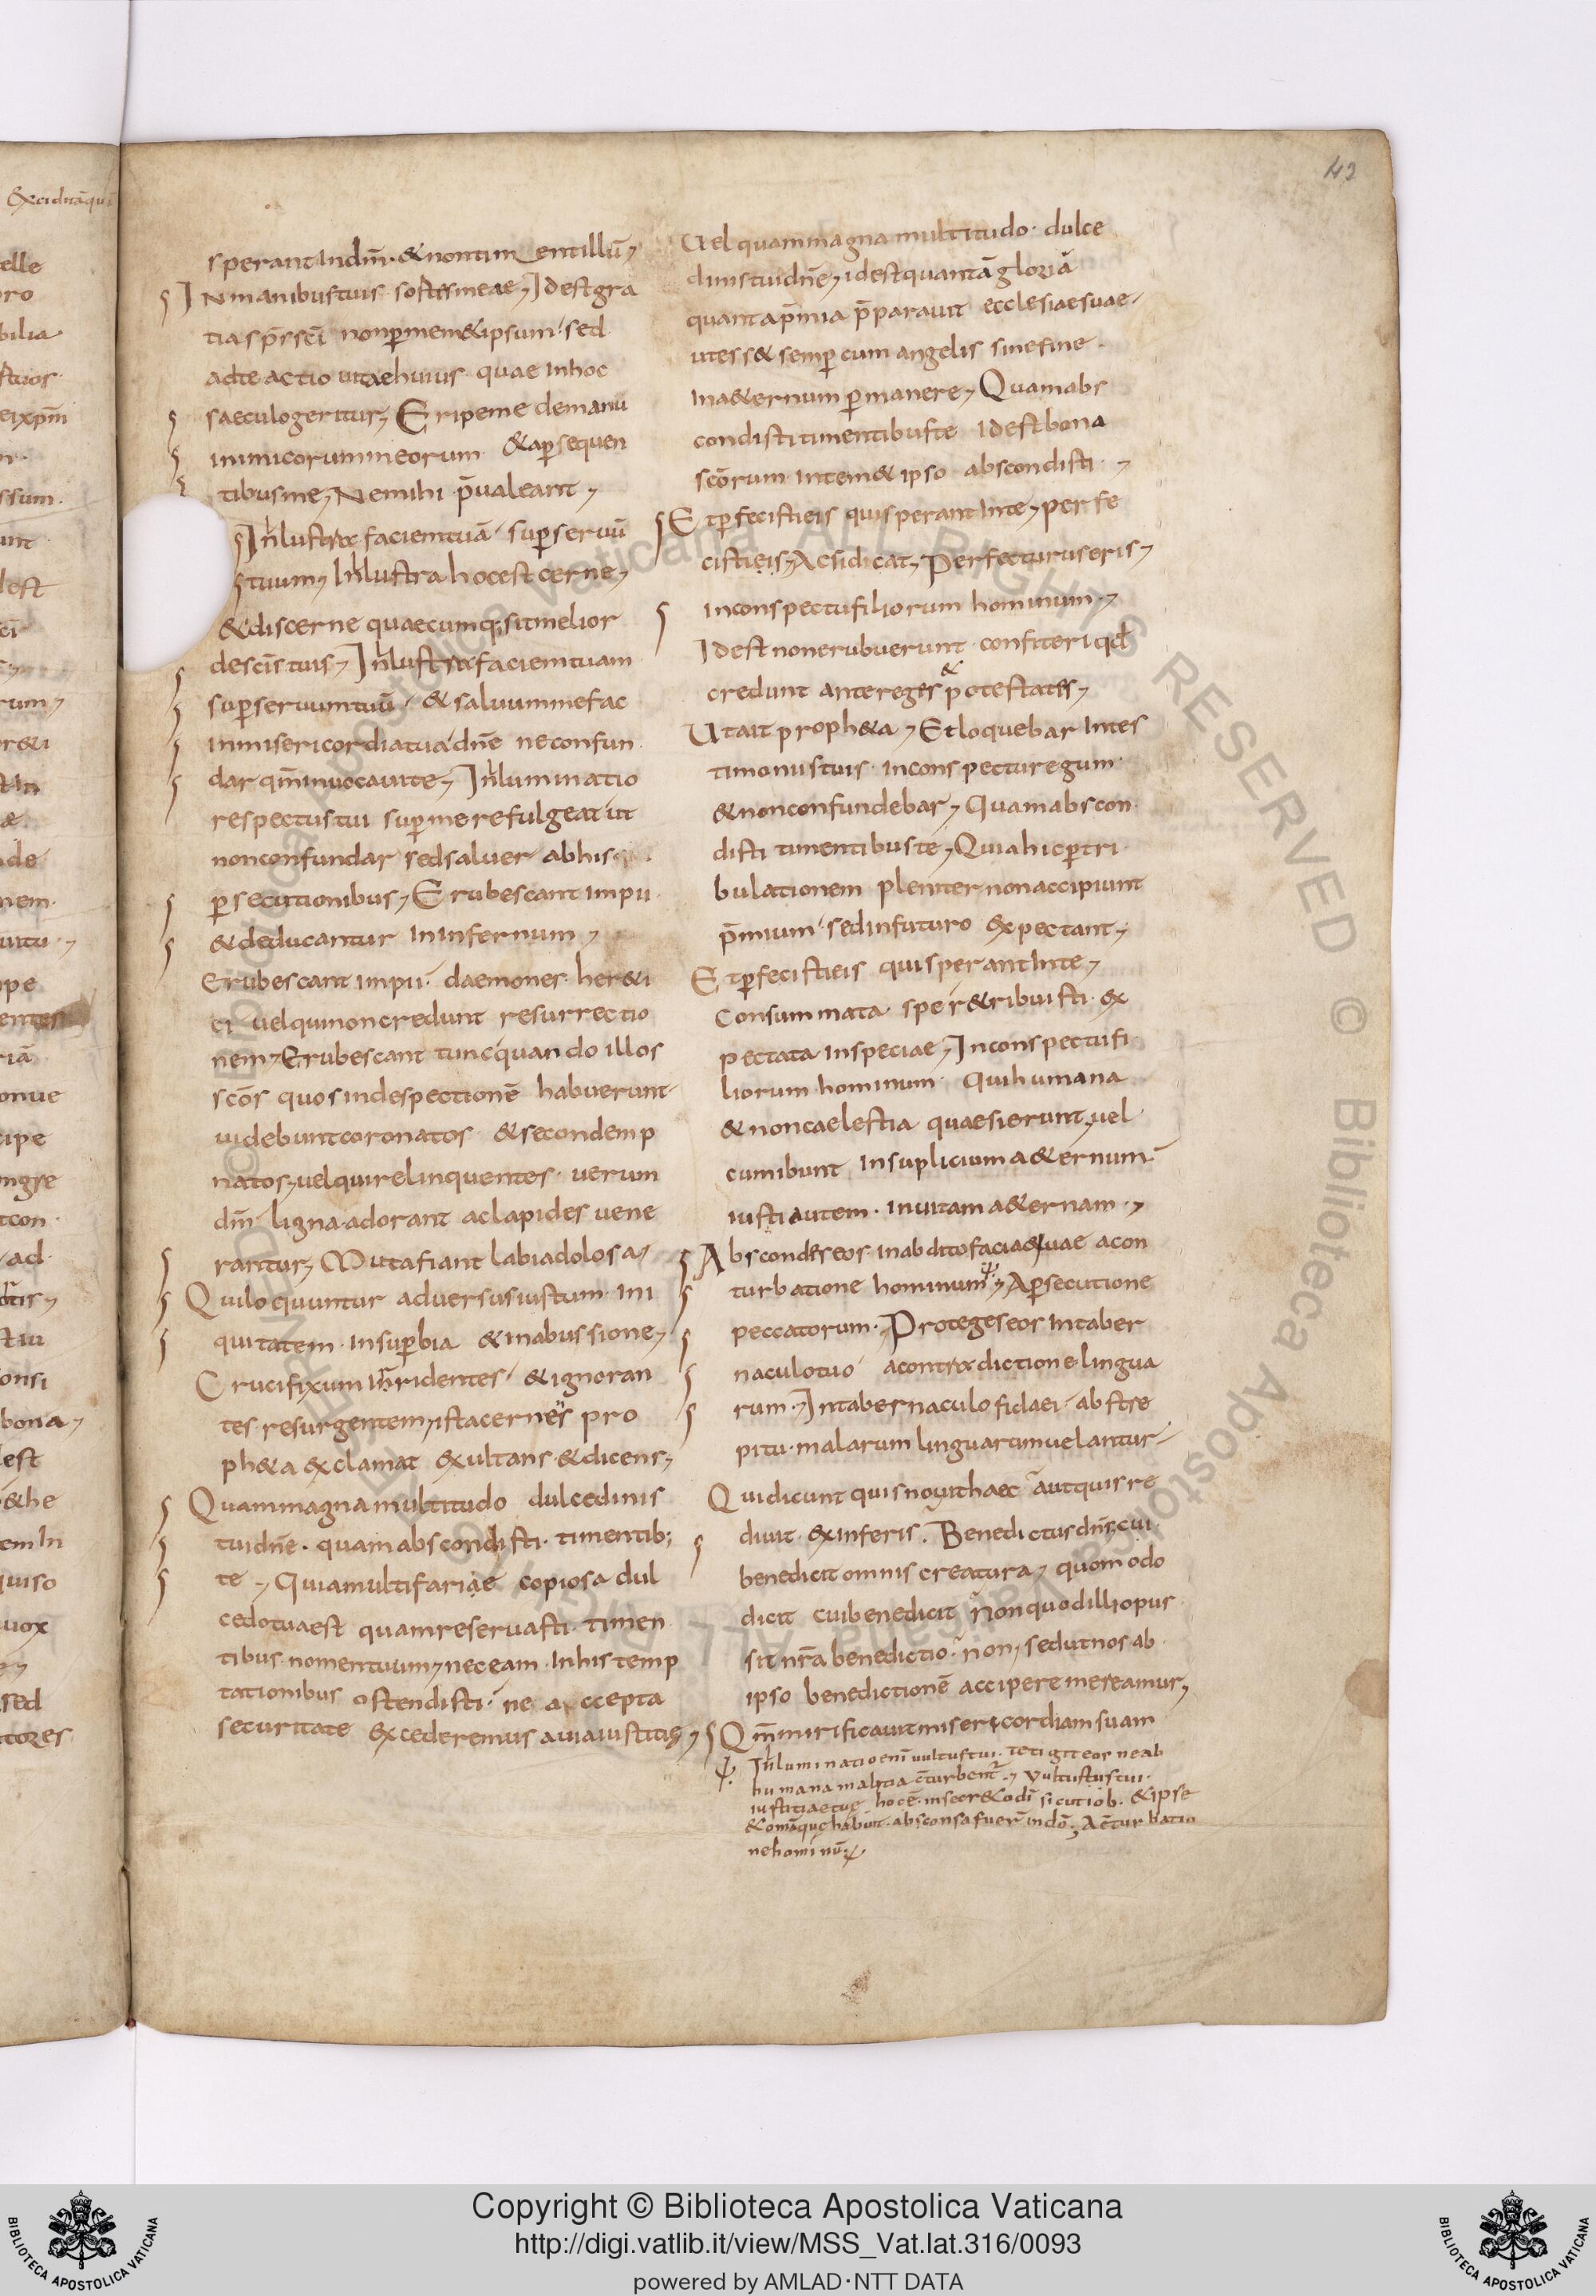 42
sperant in dn̄m· & non timent illū
In manibus tuis sortes meae Id est gra
tia sp̄s sc̄i non per memet ipsum sed
ad te actio uitae huius quae in hoc
saeculo geritur Eripe me de manu
inimicorum meorum & a persequen
tibus me Ne mihi p̄ualeant
Inlustra faciem tuā super seruū
tuum Inlustra hoc est cerne
& discerne quaecumq; sit melior
de sc̄is tuis Inlustra faciem tuam
super seruum tuū & saluum me fac
in misericordia tua dn̄e ne confun
dar qm̄ inuocaui te Inluminatio
respectus tui super me refulgeat ut
non confundar sed saluer ab his
persecutionibus Erubescant impii
& deducantur in infernum
Erubescant impii daemones her&i
ci uel qui non credunt resurrectio
nem Erubescant tunc quando illos
sc̄os quos in despectionē habuerunt
uidebunt coronatos & se condemp
natos uel qui relinquentes uerum
dm̄ ligna adorant ac lapides uene
rantur Muta fiant labia dolosa
Qui loquuntur aduersus iustum ini
quitatem in superbia & in abussione
Crucifixum irridentes & ignoran
tes resurgentem ista cernens pro
ph&a exclamat exultans & dicens
Quam magna multitudo dulcedinis
tui dn̄e· quam abscondisti· timentib;
te Quia multifariae copiosa dul
cedo tua est quam reseruasti timen
tibus nomen tuum nec eam in his temp
tationibus ostendisti· ne accepta
securitate excederemus a uia iustitię
Uel quam magna multitudo· dulce
dinis tui dn̄e id est quantā gloriā
quanta p̄mia p̄parauit ecclesiae suae
ut ess& semper cum angelis sine fine
in aeternum permanere Quam abs
condisti timentibus te Id est bona
sc̄orum in temet ipso abscondisti
Et perfecisti eis qui sperant in te perfe
cisti eis Ac si dicat Perfecturus eris
in conspectu filiorum hominum
Id est non erubuerunt confiteri qd
credunt ante reges & potestates
Ut ait proph&a Et loquebar in tes
timoniis tuis in conspectu regum
& non confundebar Quam abscon
disti timentibus te Quia hic per tri
bulationem pleniter non accipiunt
p̄mium sed in futuro expectant
Et perfecisti eis qui sperant in te
Consummata spe r&ribuisti· ex
pectata in speciae In conspectu fi
liorum hominum Qui humana
& non caelestia quaesierunt uel
cum ibunt in suplicium a&ernum
iusti autem· in uitam a&ernam·
Abscondes eos in abdito faciae tuae a con
turbatione hominum A persecutione
peccatorum· Proteges eos in taber
naculo tuo a contradictione lingua
rum· In tabernaculo fidaei abstre
pitu malarum linguarum uelantur
Qui dicunt quis nouit haec aut quis re
diuit ex inferis· Benedictus dn̄s cui
benedicit omnis creatura quomodo
dicit cui benedicit Non quod illi opus
sit nr̄a benedictio non sed ut nos ab
ipso benedictionē accipere mereamur
Qm̄ mirificauit misericordiam suam
Inluminatio enī uultus tui· tetigit eos ne ab
humana malitia c̄turbent̄ Uultus tuus tui
iustitiae tuę hoc ē in secr&o dī sicut iob· & ipse
& om̄a quę habunt· absconsa fuer̄ in dō· A c̄turbatio
ne hominū
Copyright © Biblioteca Apostolica Vaticana
http://digi.vatlib.it/view/MSS_Vat.lat.316/0093
powered by AMLAD·NTT DATA